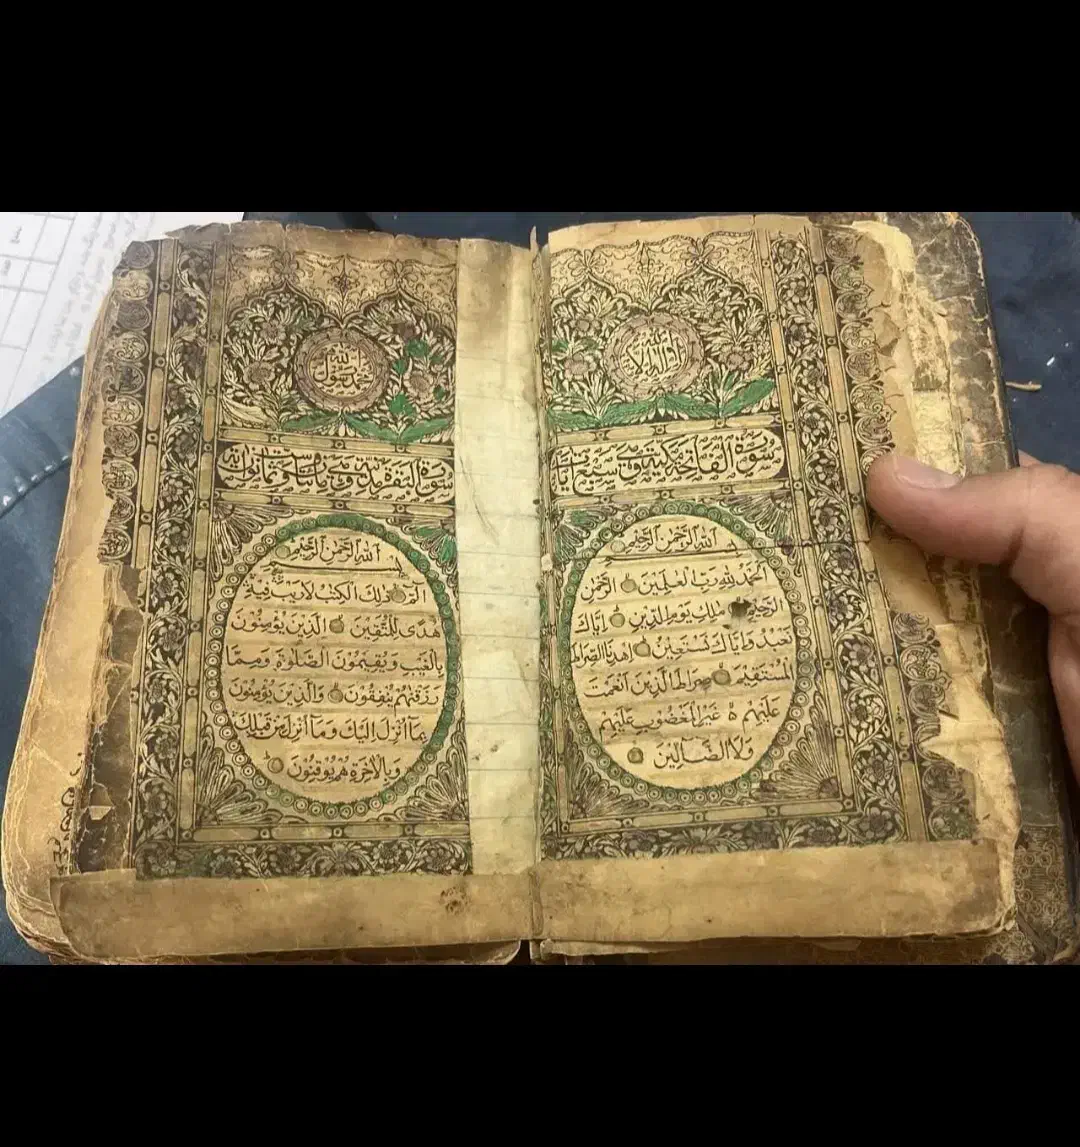 لا اله الا الله
سورة الفاتحة مكية وهي سبع آيات
بسم الله الرحمن الرحيم
الحمد لله رب العلمين الرحمن
الرحيم ملك يوم الدين اياك
نعبد واياك نستعين اهدنا الصراط
المستقيم صراط الذين انعمت
عليهم ه غير المغضوب عليهم
ولا الضالين
محمد رسول الله
سورة البقرة مدنية وهي مائتان وست وثمانون اية
بسم الله الرحمن الرحيم
الم ذلك الكتب لاريب فيه
هدى للمتقين الذين يؤمنون
بالغيب ويقيمون الصلوة ومما
رزقنهم ينفقون والذين يؤمنون
بما انزل اليك وما انزل من قبلك
وبالاخرة هم يوقنون